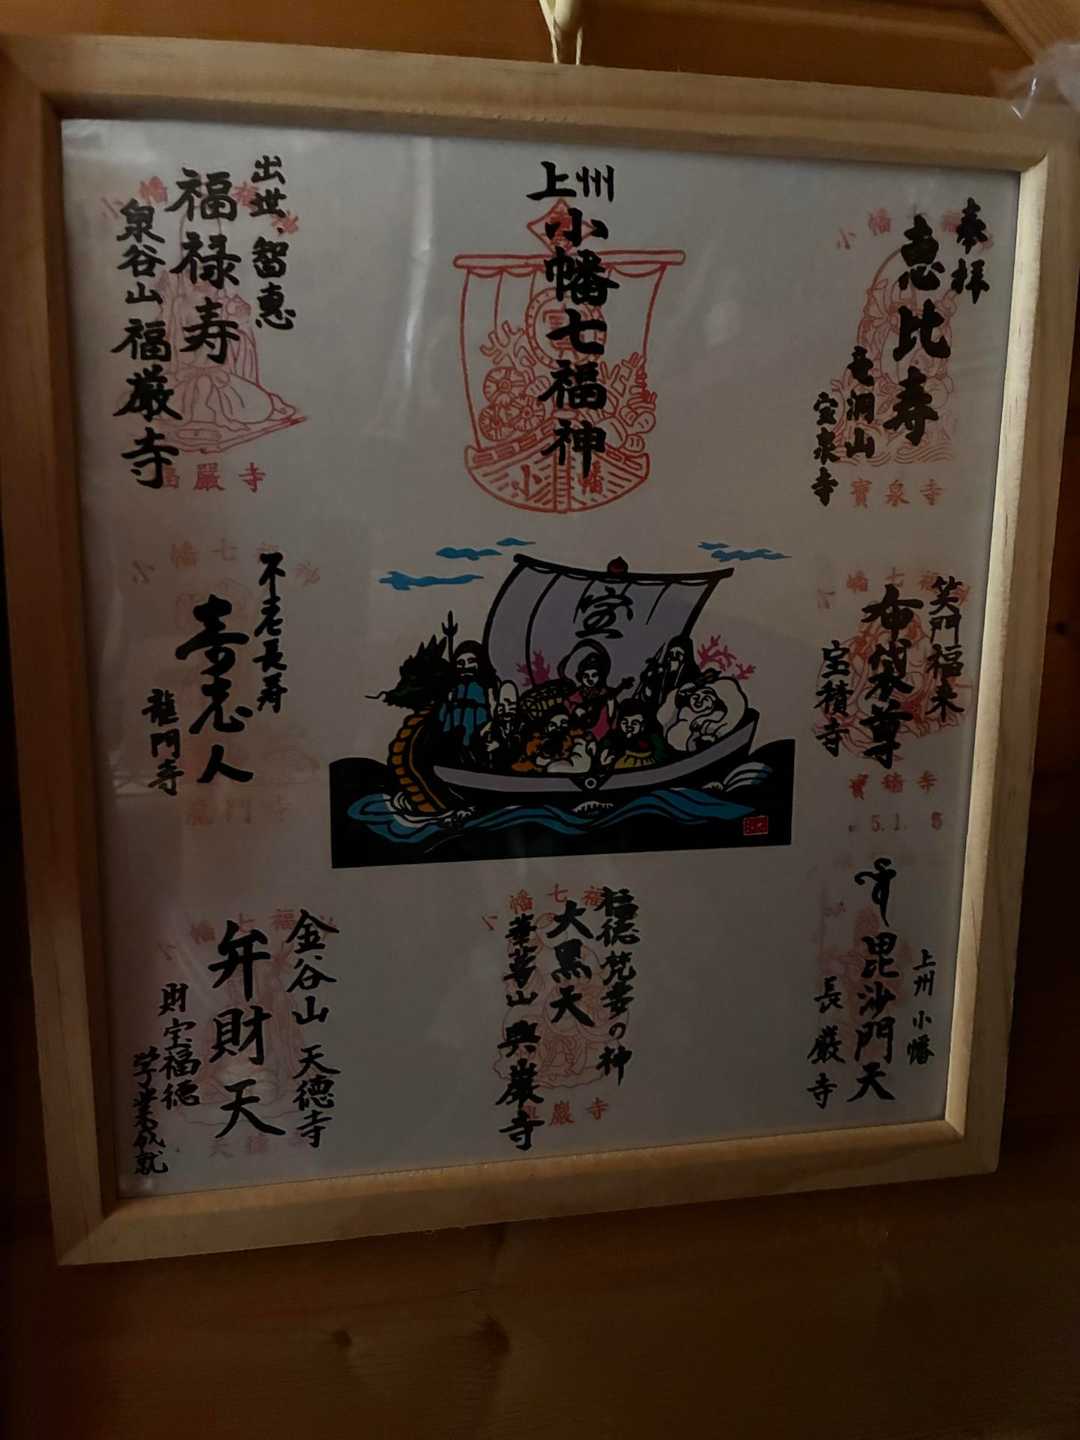 上州
小幡七福神
小幡
奉拝
恵比寿
竜洞山
宝泉寺
寳泉寺
笑門福来
布袋尊
宝積寺
寳積寺
5.1.5
上州 小幡
毘沙門天
長厳寺
大黒天
興巌寺
金谷山 天徳寺
弁財天
財宝福徳
学業成就
不老長寿
寿老人
龍門寺
龍門寺
出世、智恵
福禄寿
泉谷山 福厳寺
宝